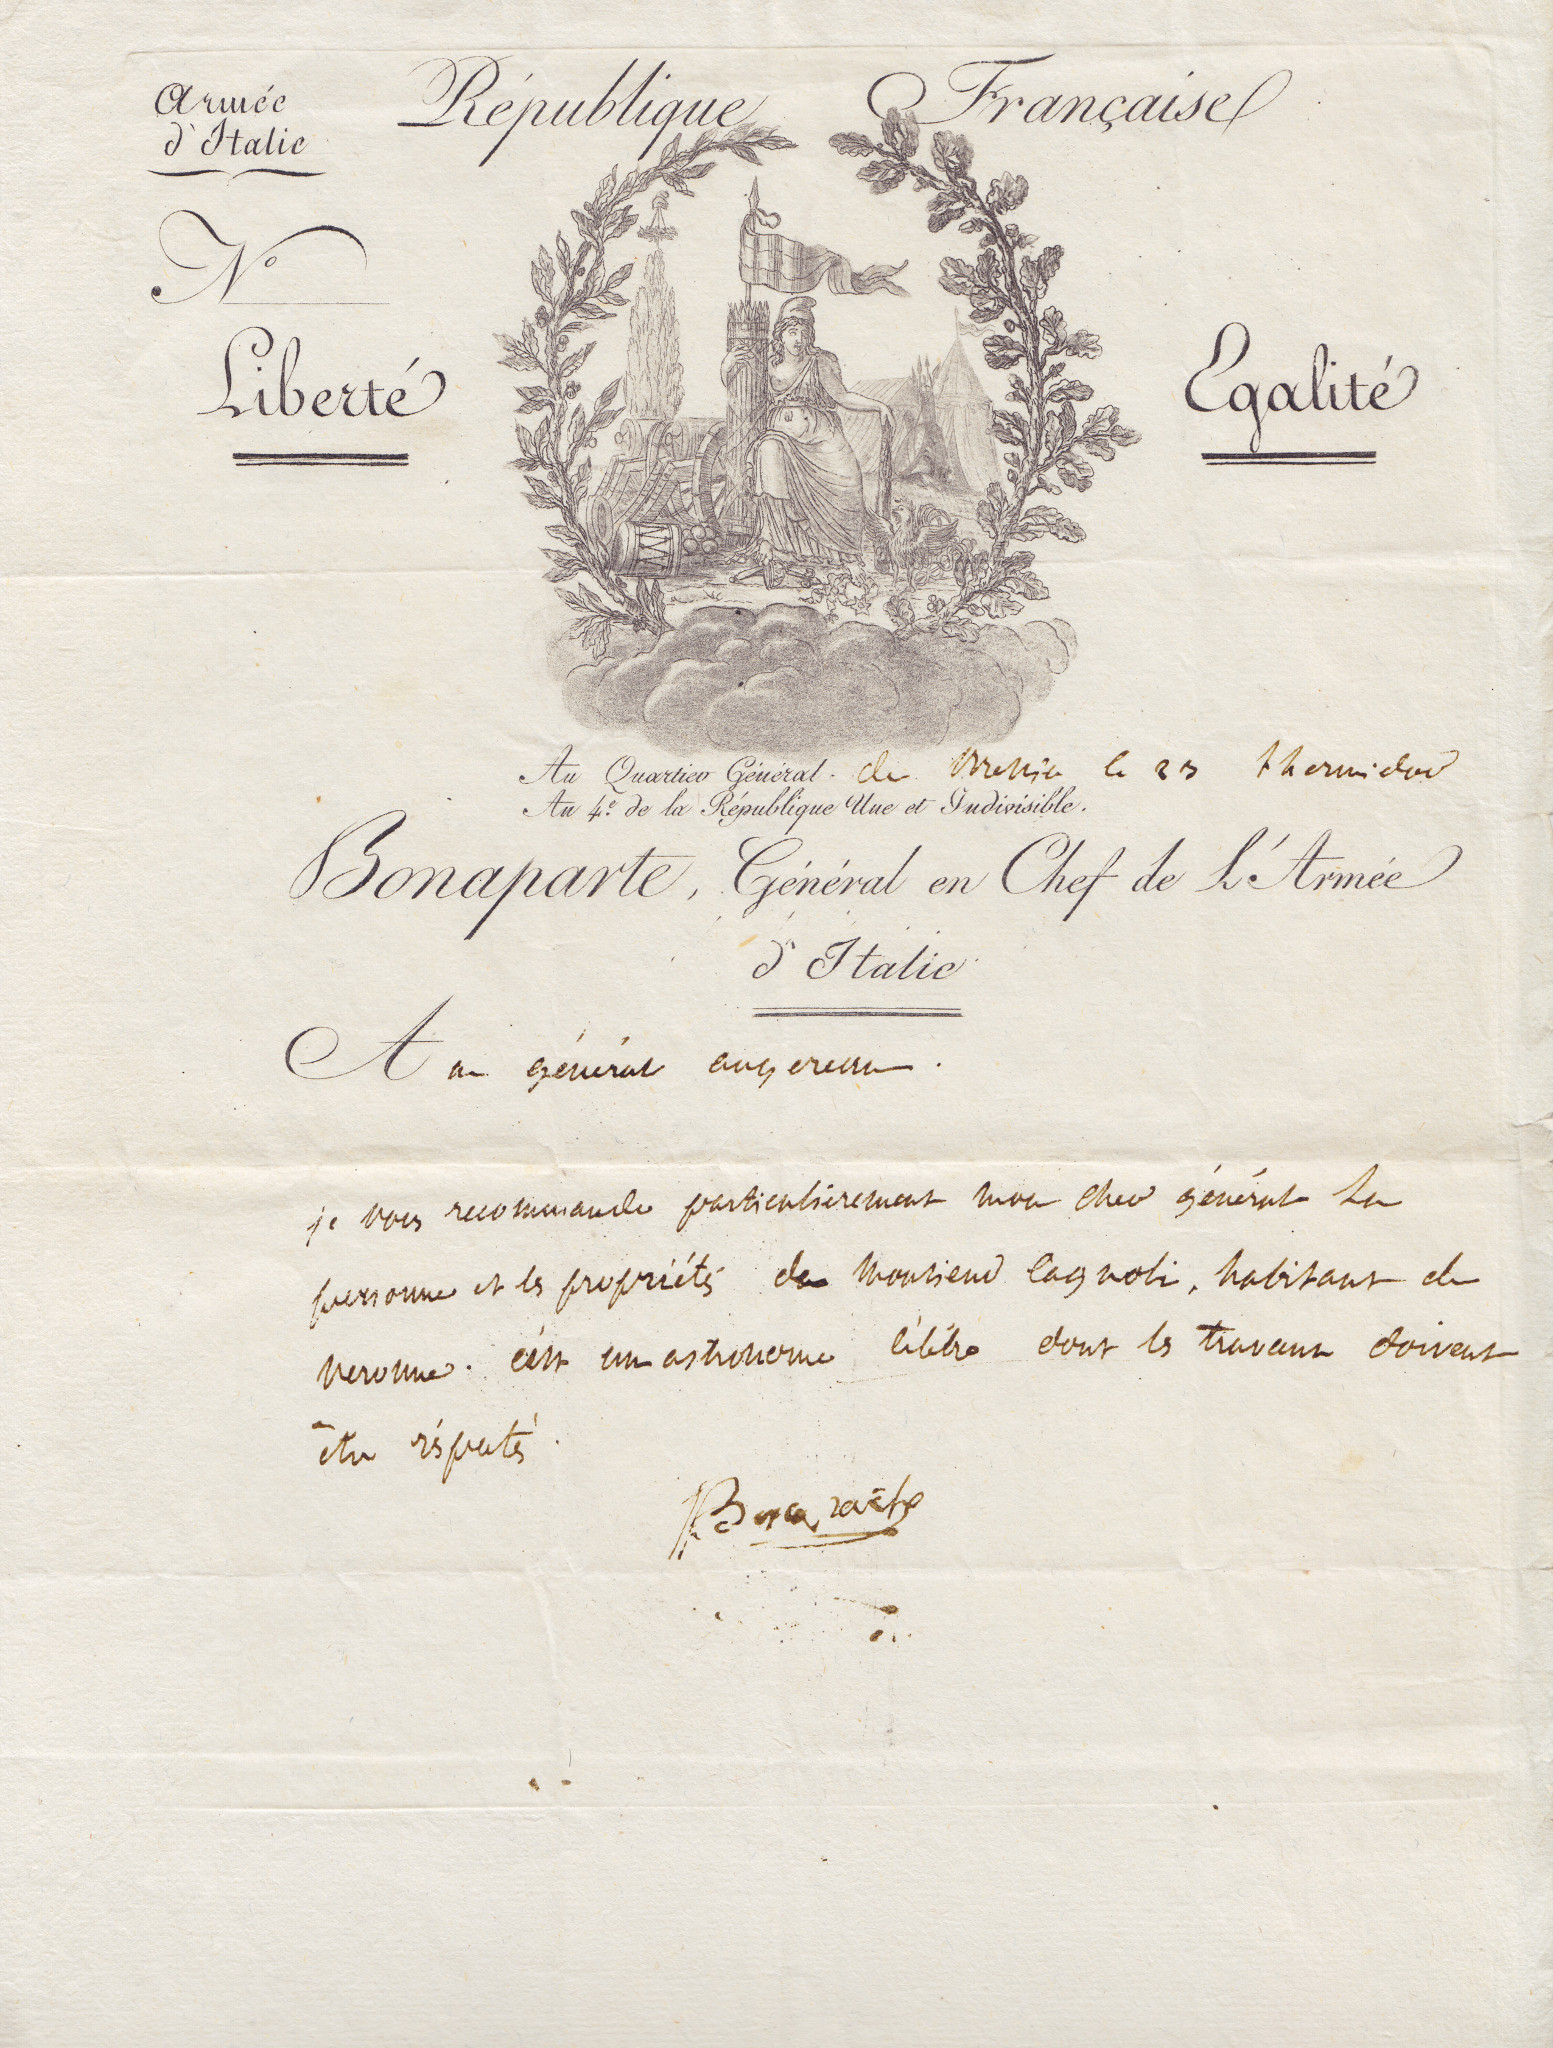 Armée
d'Italie
République Française
N°
Liberté
Egalité
Au Quartier Général de Brescia le 23 thermidor
An 4.e de la République Une et Indivisible.
Bonaparte, Général en Chef de L'Armée
d'Italie
Au général augereau.
je vous recommande particulierement mon cher général La
personne et les propriétés de Monsieur Cagnoli, habitant de
veronne. c'est un astronome célèbre dont les travaux doivent
être réspectés.
Bonaparte